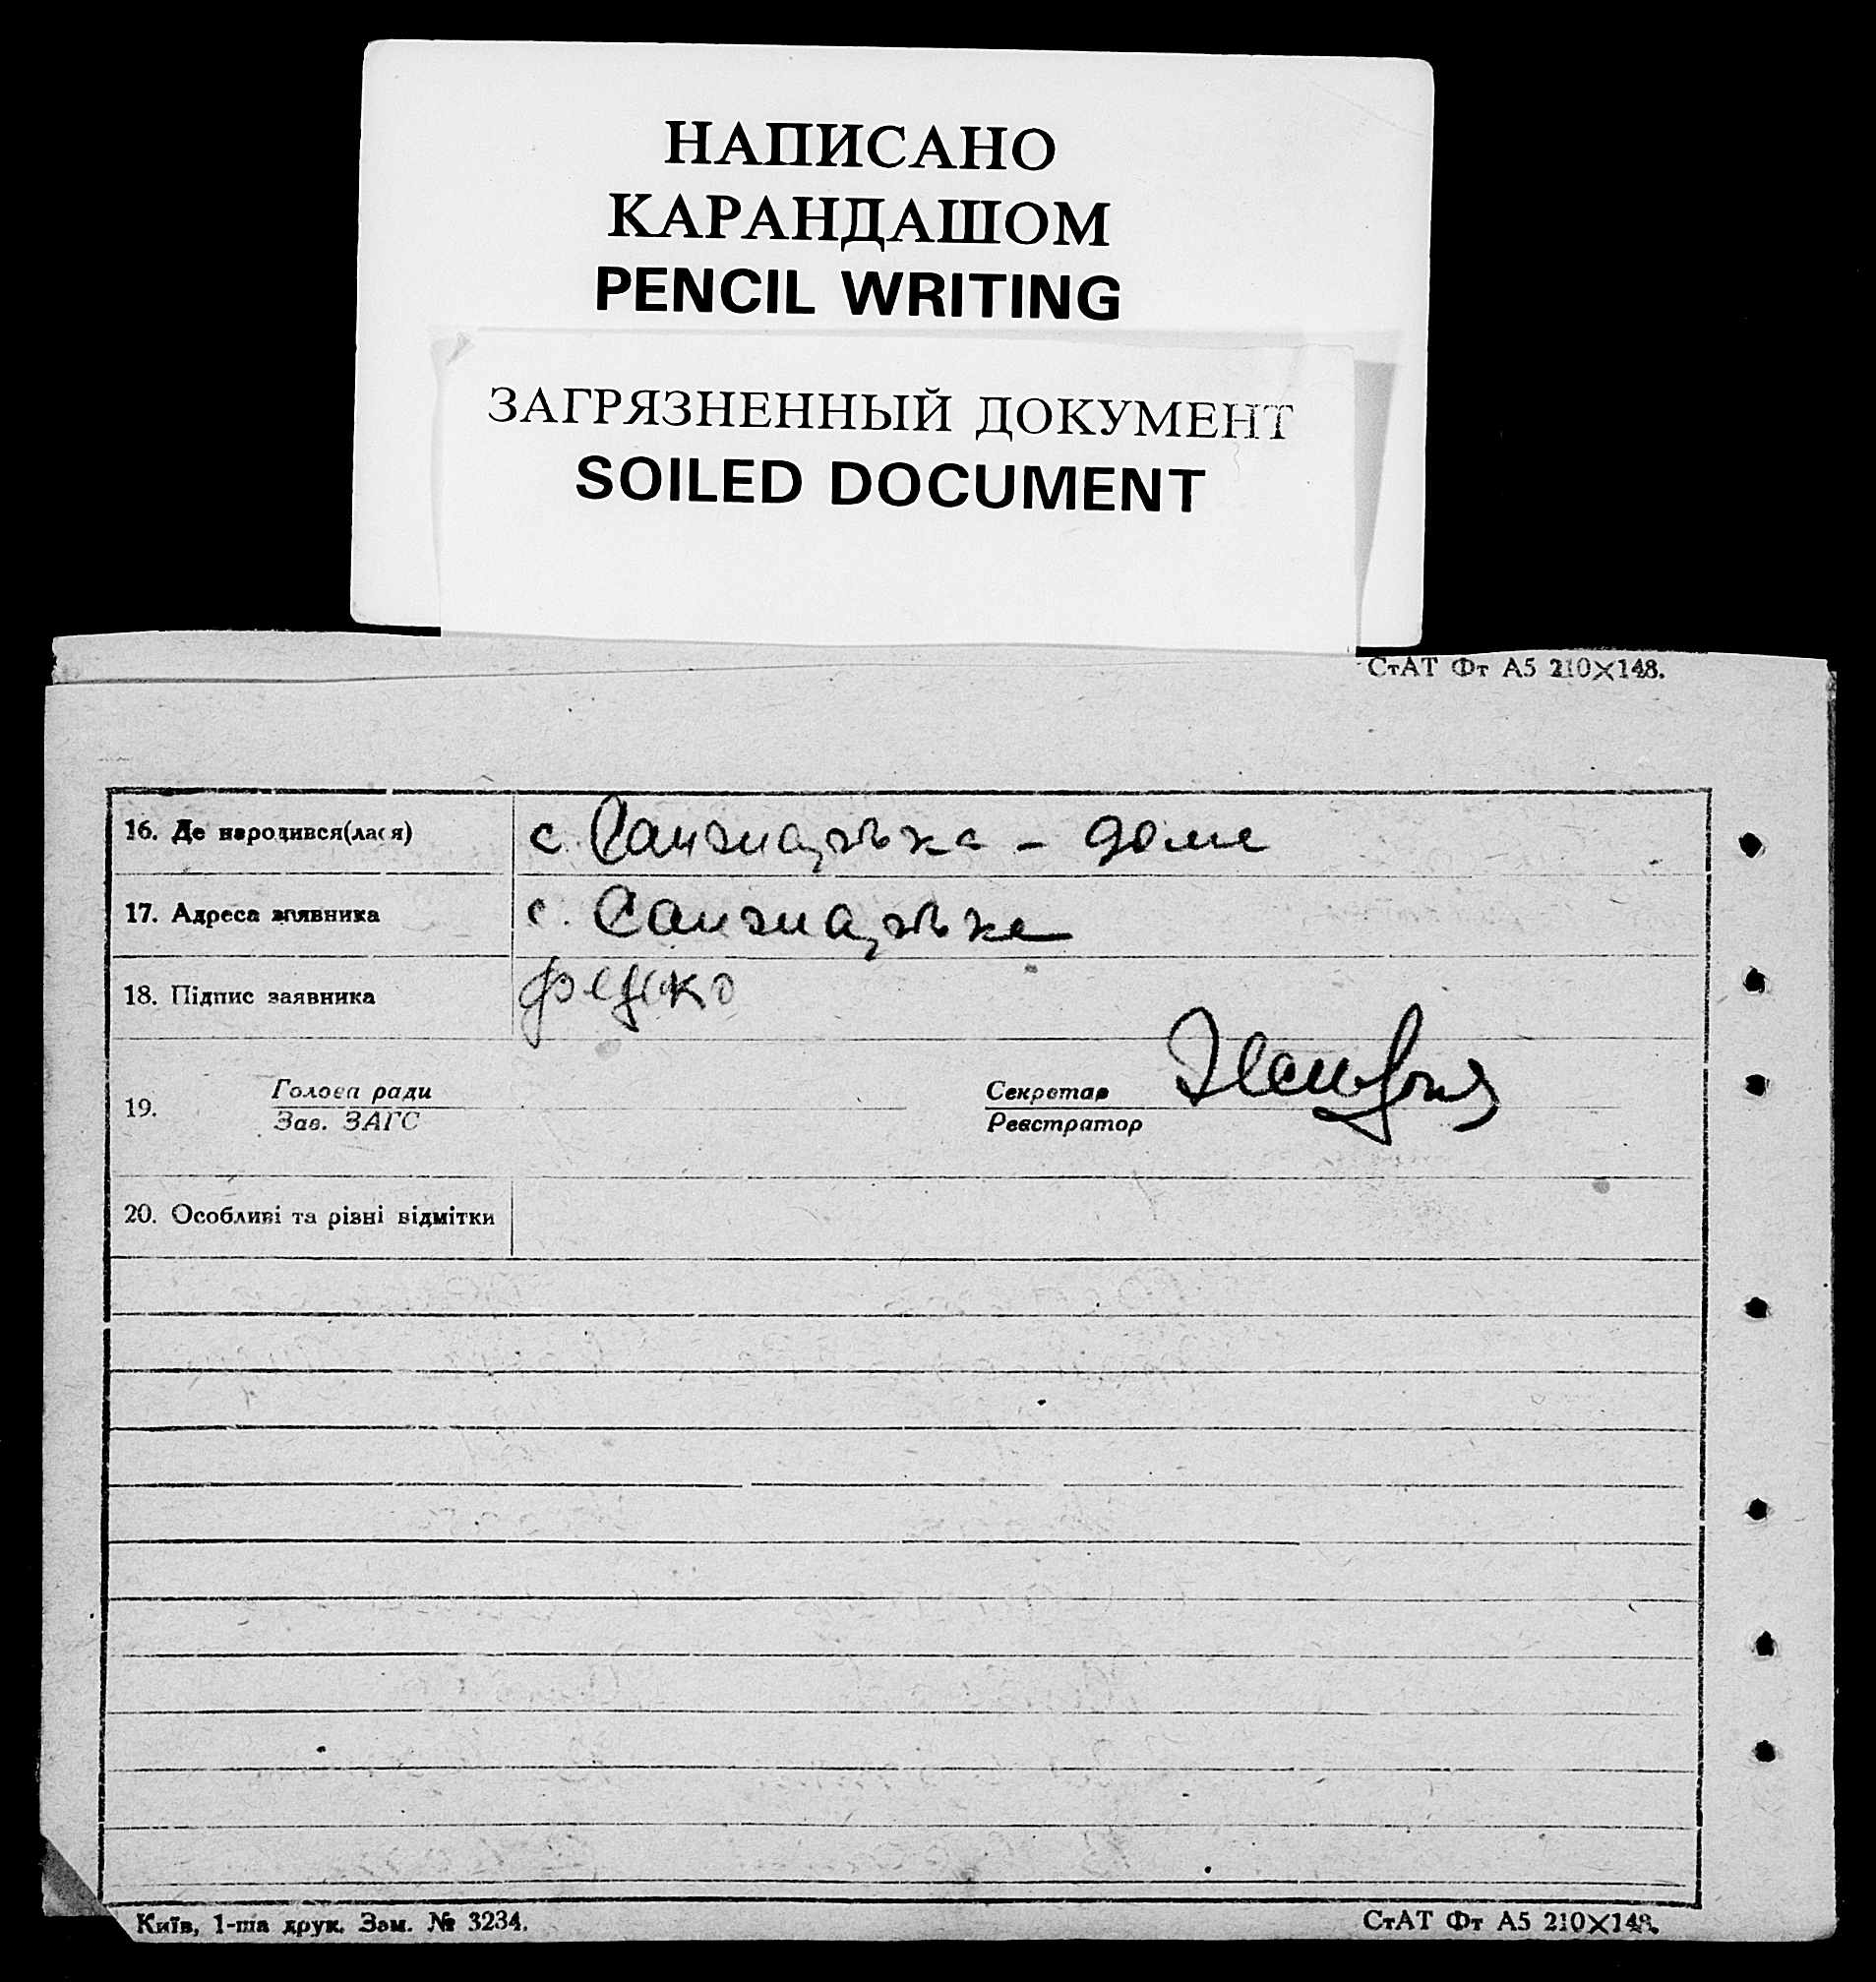 НАПИСАНО
КАРАНДАШОМ
PENCIL WRITING
ЗАГРЯЗНЕННЫЙ ДОКУМЕНТ
SOILED DOCUMENT
СтАТ Фт А5 210×148.
16. Де народився(лася) с. – доме
17. Адреса заявника с.
18. Підпис заявника
19. Голова ради Секретар
Зав. ЗАГС Реєстратор
20. Особливі та різні відмітки
Київ, 1-ша друк. Зам. № 3234. СтАТ Фт А5 210×148.